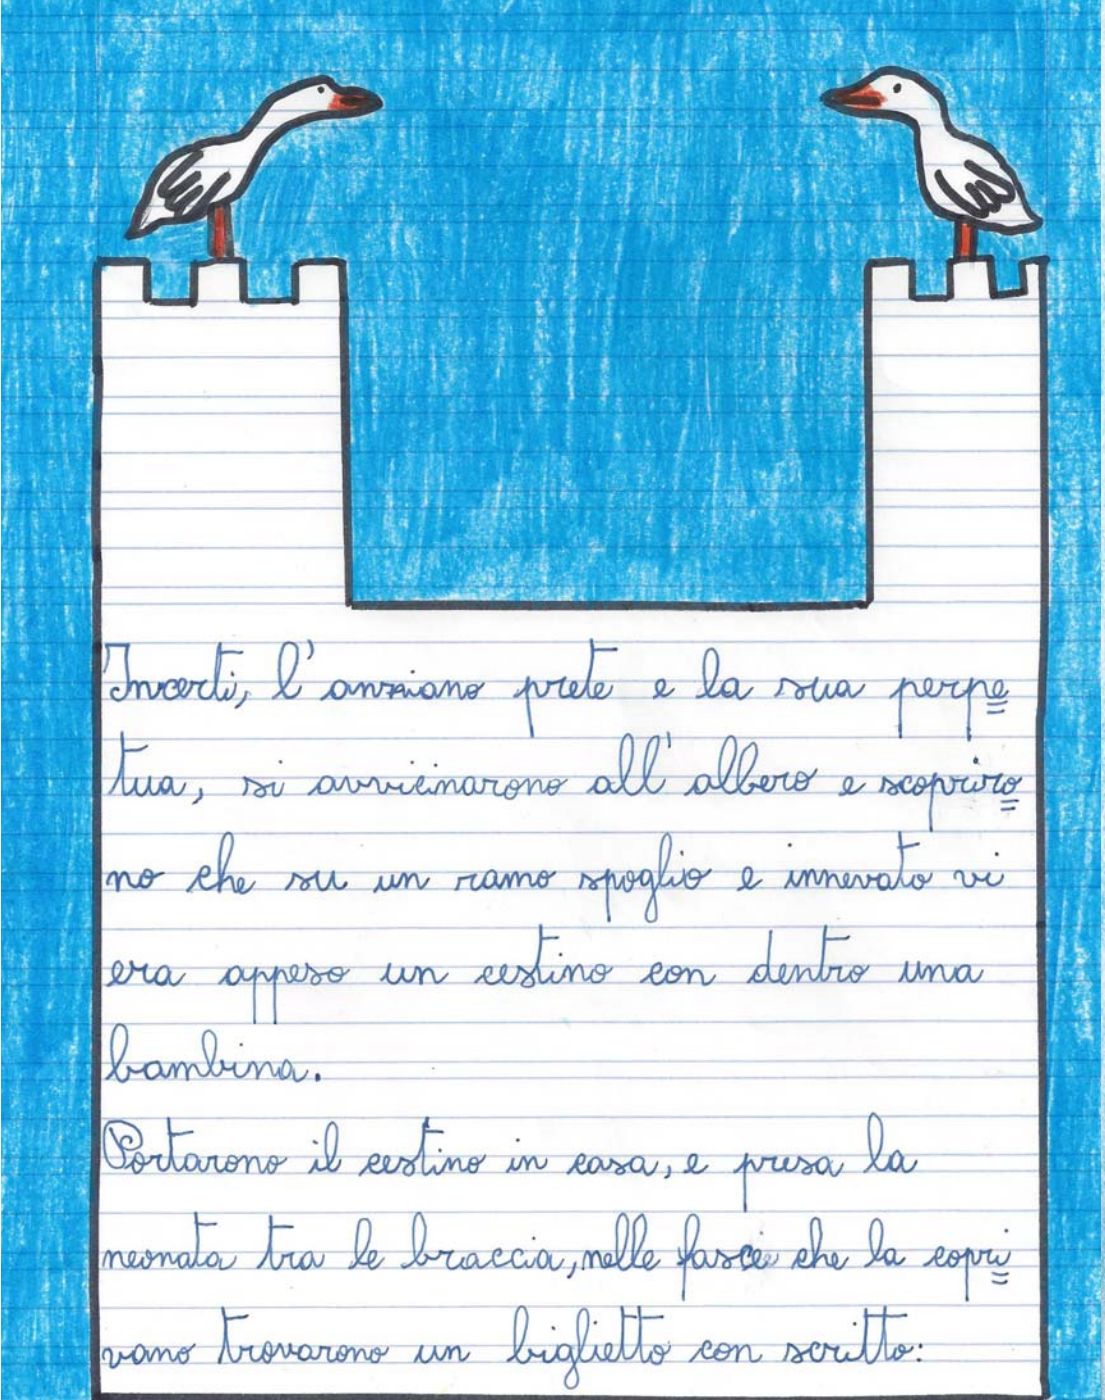 Incerti, l'anziano prete e la sua perpe=
tua, si avvicinarono all'albero e scopriro=
no che su un ramo spoglio e innevato vi
era appeso un cestino con dentro una
bambina.
Portarono il cestino in casa, e presa la
neonata tra le braccia, nelle fasce che la copri=
vano trovarono un biglietto con scritto: